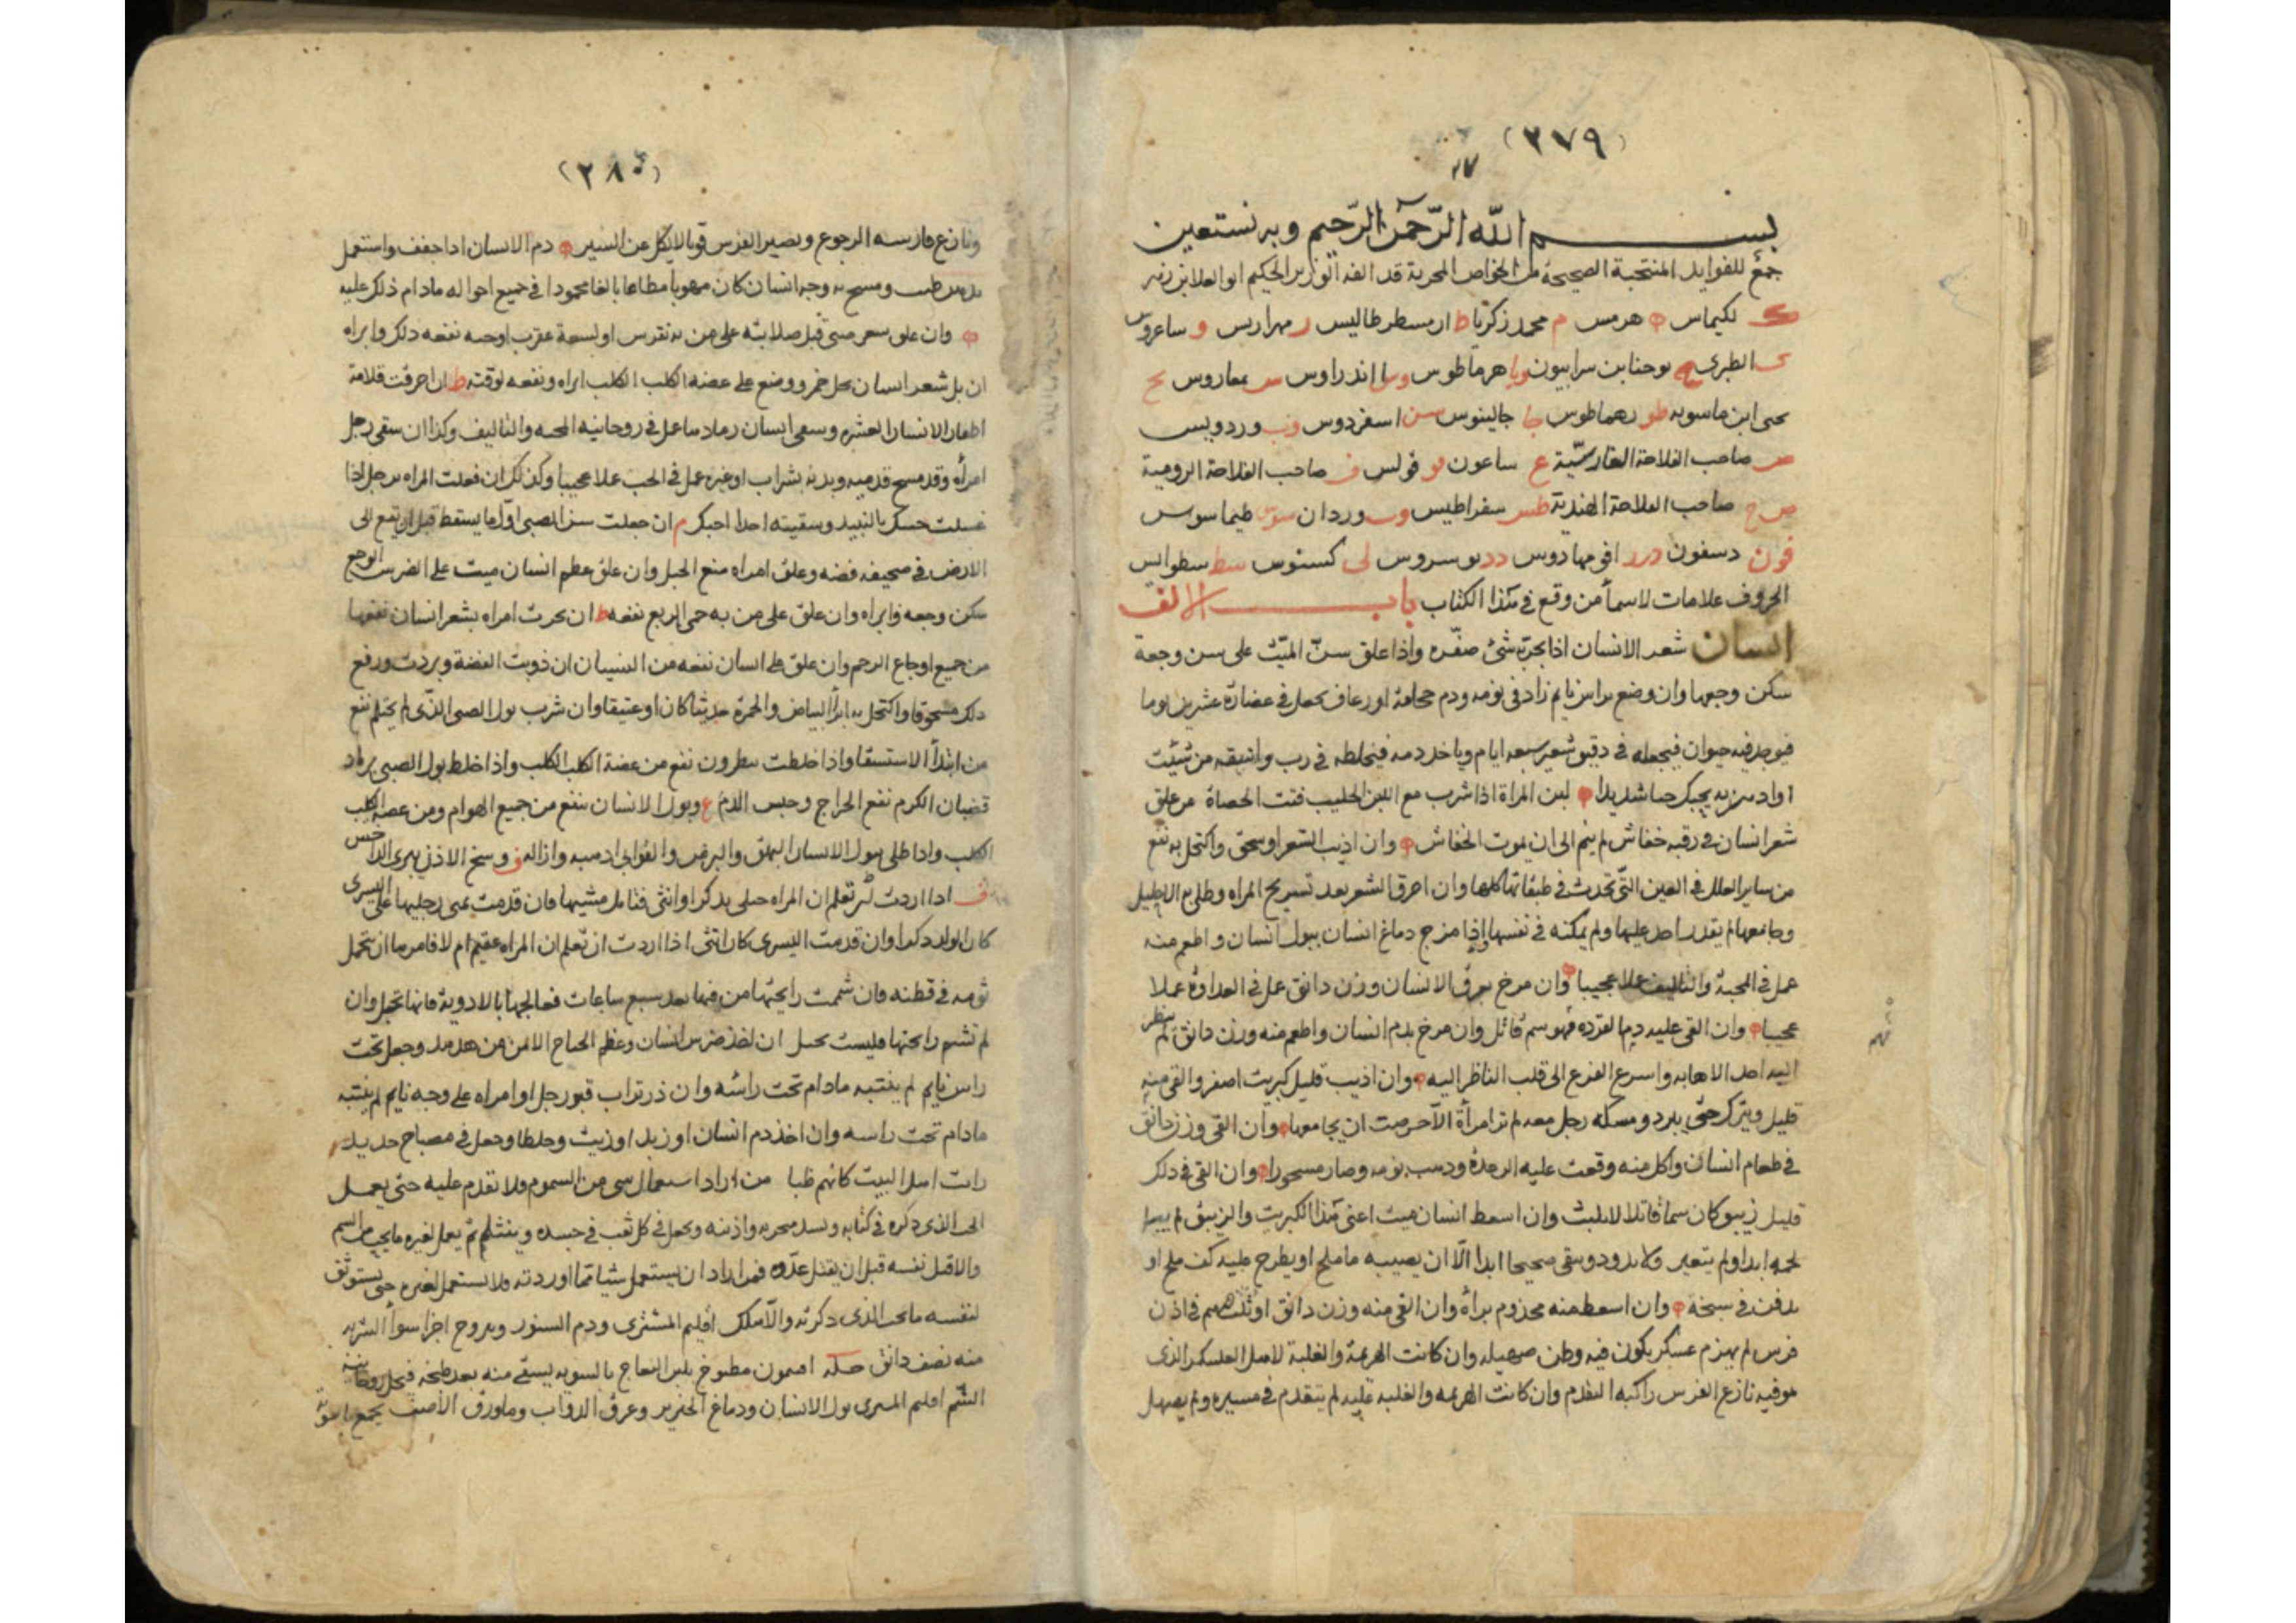 (٢٧٩)
٢٧
بسم الله الرّحمن الرّحيم وبه نستعين
جمع للفوايد المنتخبة الصحيحة من الخواص المجربة قد الفه الوزير الحكيم ابو العلا بن زهر
لكيماس هرمس م محمد زكريا ط ارسطرطاليس ر مهراريس و ساعروس
الطبرى يه يوحنا بن سرابيون ويا هرماطوس انذراوس س معاروس يح
يحى ابن ماسويه طو رهماطوس جا جالينوس سن اسفردوس وب وردويس
صاحب الفلاحة الفارسيّة ع ساعون فو فولس ف صاحب الفلاحة الرومية
ص ح صاحب الفلاحة الهندية طس سقراطيس وب وردان سوس طيماسوس
دسقون درر افومهادوس دد بوسروس لى كستوس سط سطوانيس
الحروف علامات لاسمأ من وقع فى هذا الكتاب باب الالف
انسان شعر الانسان اذا بخر به شئ صفّره واذا علق سنّ الميّت على سن وجعة
سكن وجعها وان وضع براس نايم زاد فى نومه ودم حجامة او رعاف يجعل فى عضارة عشرين يوما
فيوجد فيه حيوان فيجعله فى دقيق شعير سبعه ايام وياخد دمه فيخلطه فى رب واسقه من شيئت
يحبك حبا شديدا لبن المراة اذا شرب مع اللبن الحليب فتت الحصاة من علق
شعر انسان فى رقبه خفاش لم ينم الى ان يموت الخفاش وان اذيب الشعر او سحق واكتحل به نفع
من ساير العلل فى العين التّى تحدث فى طبقاتها كلها وان احرق الشعر بعد تسريح المراه وطلى به الاحليل
وجامعها لم يقدر احد عليها ولم يمكنه فى نفسها واذا مزج دماغ انسان ببول انسان واطعم منه
عمل فى المحبة والتاليف عملا عجيبا وان مرخ بعرق الانسان وزن دانق عمل فى العداوة عملا
عجيبا وان القى عليه دم القرده فهو سم قاتل وان مرخ بدم انسان واطعم منه وزن دانق لم ينظر
اليه احد الا هابه واسرع الفزع الى قلب الناظر اليه وان اذيب قليل كبريت اصفر والقى منه
قليل ويترك حتّى يبرد ومسكه رجل معه لم تر امرأة الآخر حت ان يجامعها وان القى وزن دانق
فى طعام انسان واكل منه وقعت عليه الرعدة وذهب نومه وصار مسحورا وان القى فى ذلك
قليل زيبق كان سما قاتلا لا يلبث وان اسعط انسان ميت اعنى هذا الكبريت والزيبق لم يبد
لحمه ابدا ولم يتغير ولا يدود ويبقى صحيحا ابدا الّا ان يصيبه ما ملح او يطرح عليه كف ملح او
يدفن فى سبخة وان اسعط منه مجذوم برأه وان القى منه وزن دانق او ثلث درهم فى اذن
فرس لم يهزم عسكر يكون فيه وطن صهيله وان كانت الهزيمة والغلبة لاهل العسكر الذى
هو فيه نازع الفرس راكبه التقدم وان كانت الهزيمه والغلبه عليه لم يتقدم فى مسيره ولم يصهل
(٢٨٠)
ونازع فارسه الرجوع ويصير الفرس قويا لا يكل عن السير دم الانسان اذا جفف واستعمل
ومسح به وجه انسان كان مهوبا مطاعا بالغا محمودا فى جميع احواله مادام ذلك عليه
وان علق سعر صبّى قبل صلابته على من به نقرس او لسعة عقرب اوجبه نفعه ذلك وابراه
ان بل شعر انسان بخل خمر ووضع على عضه الكلب الكلب ابراه ونفعه لوقته ط ان احرقت قلامة
اظفار الانسان العشره وسقى انسان رمادها عمل فى روحانية المحبه والتاليف وكذا ان سقى رجل
امرأه وقد مسح قدميه وبدنه بشراب او غيره عمل فى الحب عملا عجيبا وكذلك ان فعلت المراه برجل اذا
غسلت جسدك بالنبيد وسقيته احدا احبك م ان جعلت سن الصبى اوّل ما يسقط قبل ان يقع الى
الارض فى صحيفه فضه وعلق امراه منع الحبل وان علق عظم انسان ميت على الضرس الوجع
سكن وجعه وابراه وان علق على من به حمى الربع نفعه ط ان بخرت امراه بشعر انسان نفعها
من جميع اوجاع الرحم وان علق على انسان نفعه من النسيان ان ذوبت الفضة وبردت ورفع
ذلك مسحوقا واكتحل به ابرأ البياض والحمرة حديثا كان او عتيقا وان شرب بول الصبى الذّى لم يحتلم نفع
من ابتدأ الاستسقا واذا خلطت بنطرون نفع من عضة الكلب الكلب واذا خلط بول الصبى برماد
قضبان الكرم نفع الخراج وحبس الدم ع وبول الانسان ينفع من جميع الهوام ومن عضه الكلب
الكلب واذا طلى ببول الانسان البهق والبرص والقوابى اذهبه وازاله ف وسخ الاذن يبرى الداحس
ف اذا اردت ان تعلم ان المراه حبلى بذكر او انثى فتامل مشيها فان قدمت يمنى رجليها على اليسرى
كان الولد ذكرا وان قدمت اليسرى كان انثى اذا اردت ان تعلم ان المراه عقيم ام لا فامرها ان تتحمل
ثومه فى قطنه فان شممت رايحتها من فمها بعد سبع ساعات فعالجها بالادوية فانها تحبل وان
لم تشم رايحتها فليست تحبل ان اخذ ضرس انسان وعظم الجناح الايمن من هدهد وجعل تحت
راس نايم لم ينتبه مادام تحت رائسه وان ذر تراب قبور رجل او امراه على وجه نايم لم ينتبه
مادام تحت راسه وان اخذ دم انسان او زبد او زيت وخلطا وجعل فى مصباح حديد
رايت اهل البيت كانهم ظبا من اراد استعمال شى من السموم ولا تقدم عليه حتى يعمل
الحب الذى ذكره فى كتابه ويسد منخريه واذنيه ويجعل فى كل ثقب فى جسده وينتثلم ثم يعمل لغيره مايحب من السم
والا قتل نفسه قبل ان يقتل عدّوه فمن اراد ان يستعمل شيا مما اوردته ولا يستعمل لغيره حتى يستوثق
لنفسه مايحب الذى ذكرته والّا هلك اقليم المشترى ودم السنور ويدوح اجزا سوأ الشربه
منه نصف دانق حله افيون مطبوخ بلبن النعاج بالسويه يسقى منه بعد طبخه فيحل
السّم اقليم المشرى بول الانسان ودماغ الخنزير وعرق الدواب وما ورق الآصف يجمع